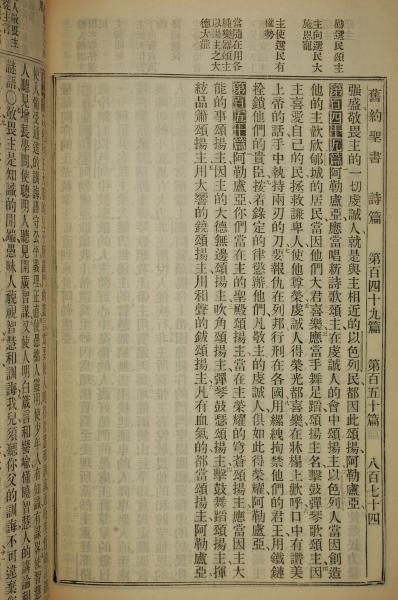 舊約聖書 詩篇 第百四十九篇 第百五十篇 八百七十四
勸選民頌主
主向選民大
施恩寵
主使選民有
權勢
當隨在用各
種樂器頌主
以揚主之大
德大能
張盛敬畏主的一切虔誠人就是與主相近的以色列民都因此頌揚阿勒盧亞
第百四十九篇阿勒盧亞應當唱新詩歌頌主在虔誠人的會中頌揚主以色列人當因創造
他的主歡欣郁城的居民當因他們大君喜樂應當手舞足蹈頌揚主名擊鼓彈琴歌頌主因
主喜愛自己的民拯救謙卑人使他尊榮虔誠人得榮光都喜樂在牀榻上歡呼口中有讚美
上帝的話手中執持兩刃的刀要報仇在列邦行刑在各國用縲絏拘禁他們的君王用鐵鏈
栓鎖他們的貴臣按着錄定的律懲辦他們凡敬主的虔誠人俱如此得榮耀阿勒盧亞
第百五十篇阿勒盧亞你們當在主的聖殿頌揚主當在主榮耀的穹蒼頌揚主應當因主大
能的事頌揚主因主的大德無邊頌揚主吹角頌揚主彈琴鼓瑟頌揚主擊鼓舞蹈頌揚主揮
絃品簫頌揚主用大響的鐃頌揚主用和聲的鈸頌揚主凡有血氣的都當頌揚主阿勒盧亞
人聽見增長學問使聰明人聽見開廣智謀又使人明白箴言和譬喻懂曉智慧人的講論和
謎語〇敬畏主是知識的開端愚昧人藐視智慧和訓誨我兒須聽你父的訓誨不可違棄